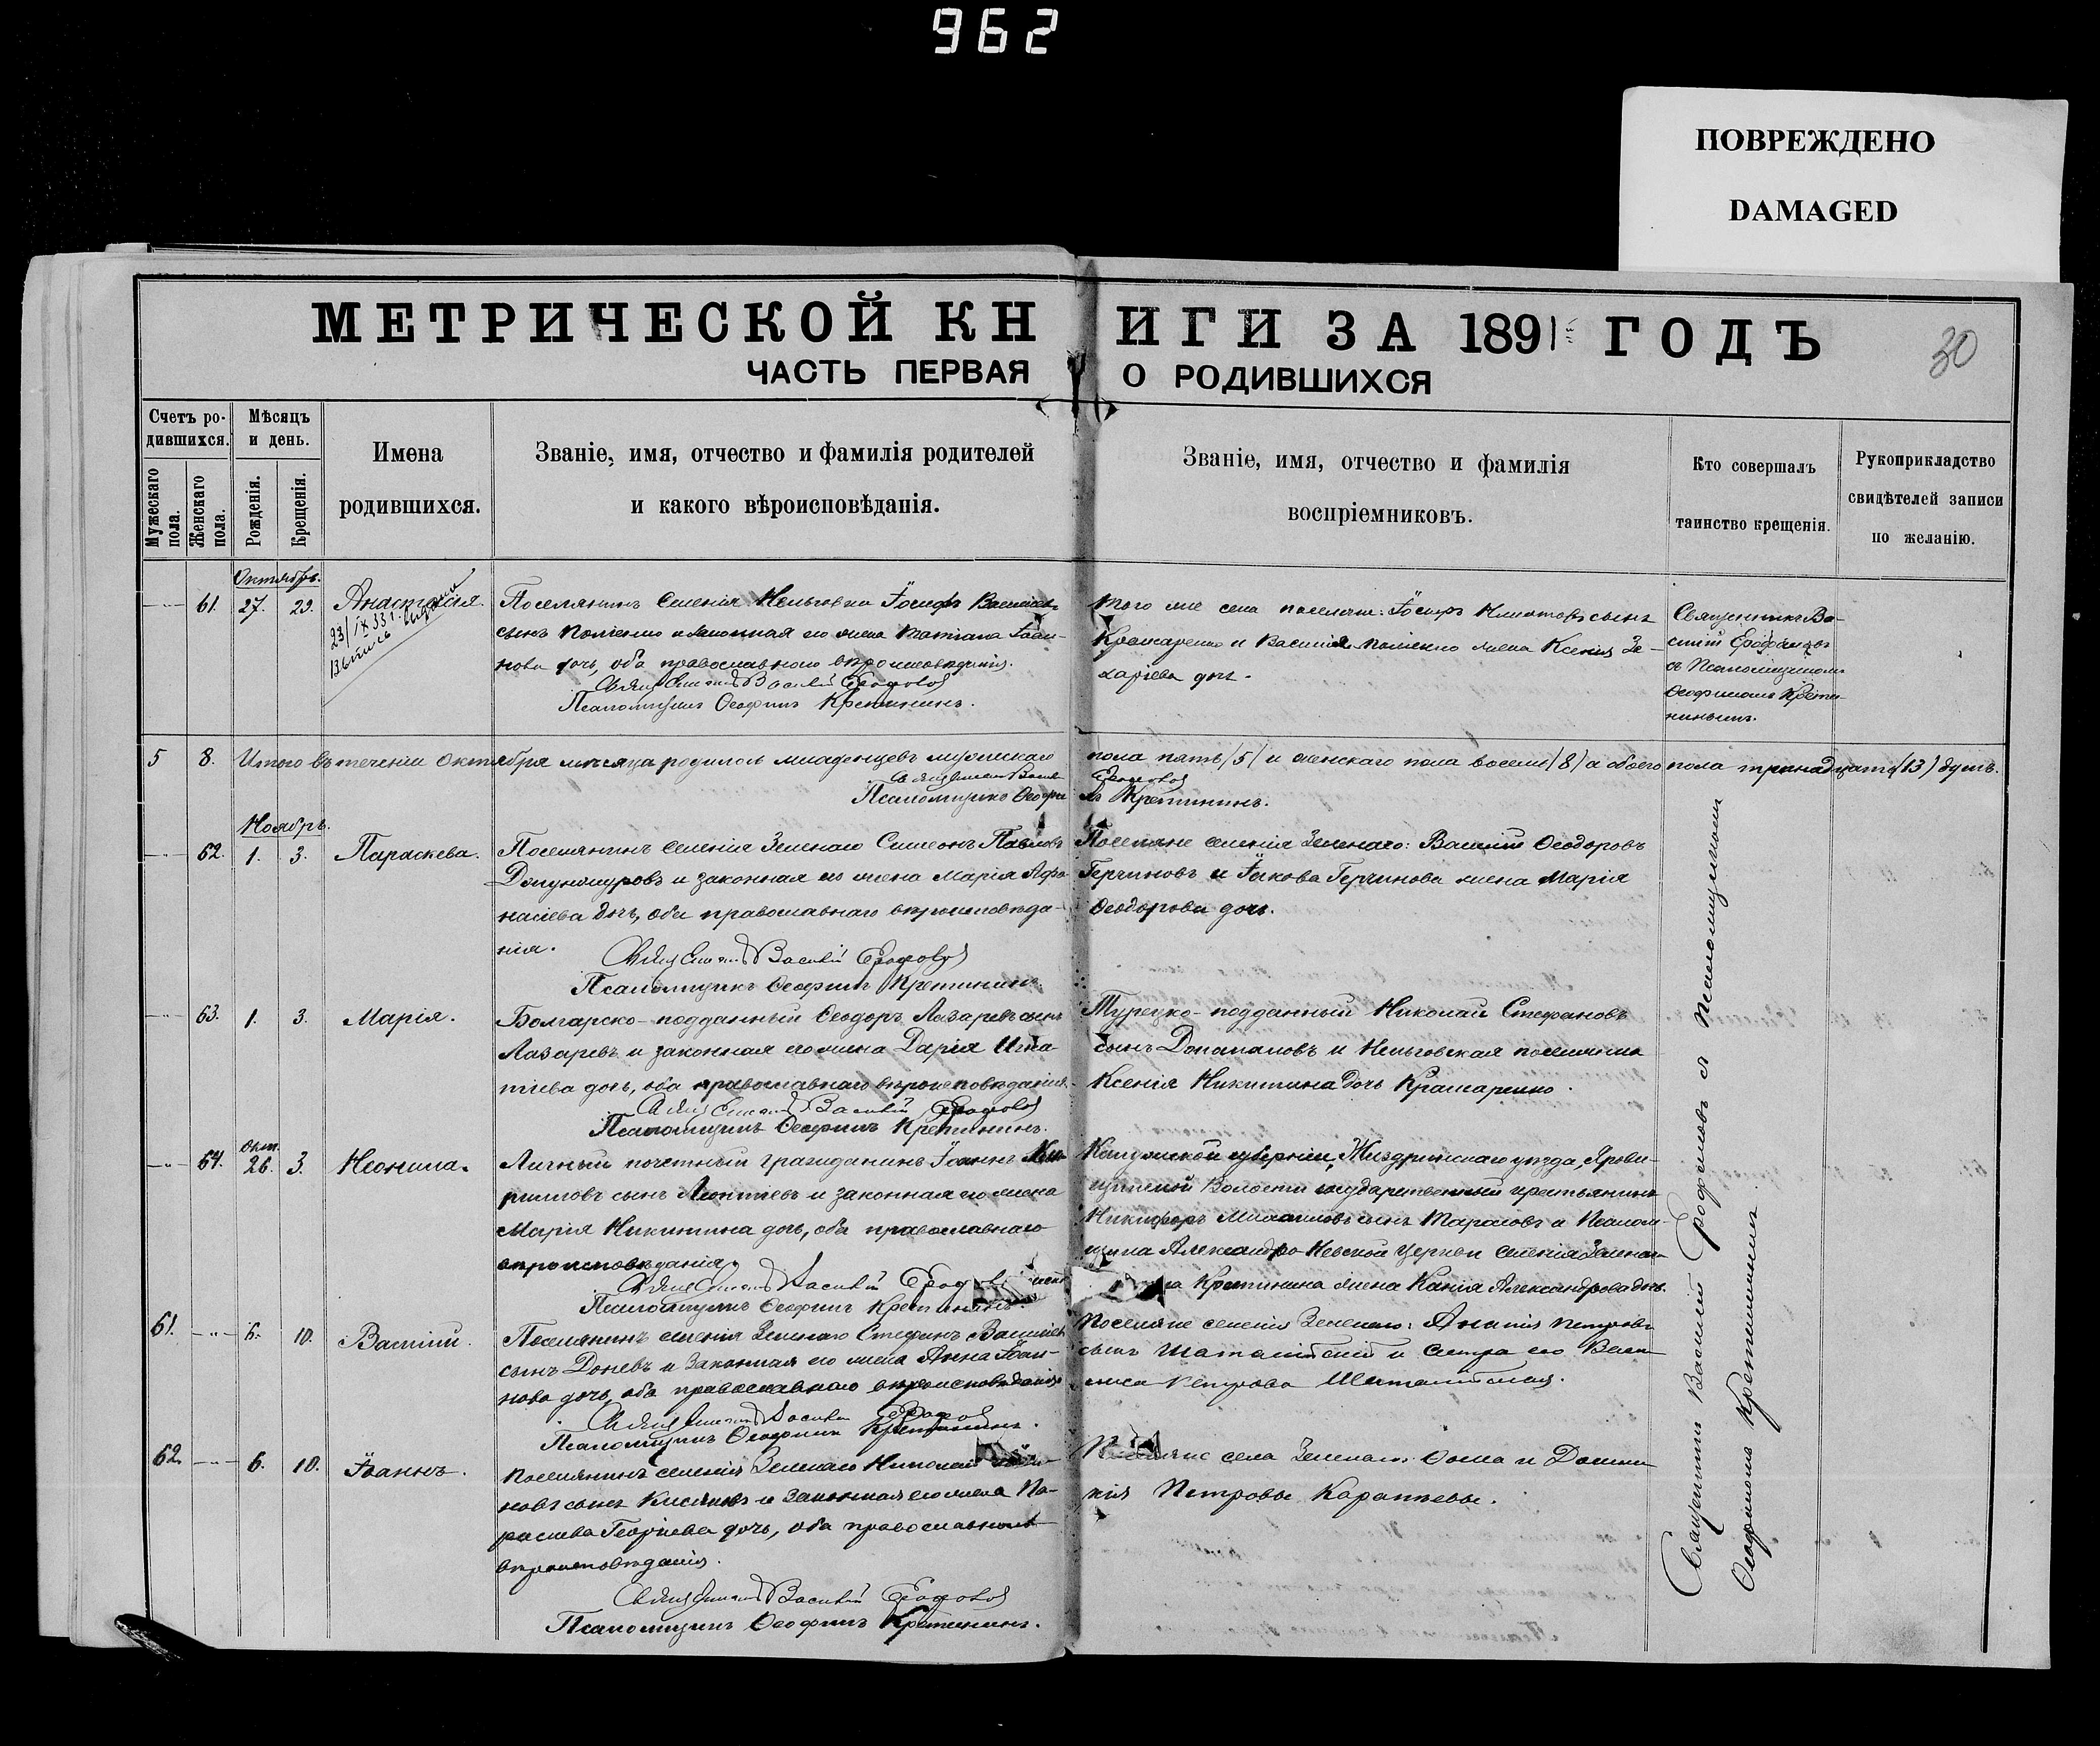 962
ПОВРЕЖДЕНО
DAMAGED
МЕТРИЧЕСКОЙ КНИГИ ЗА 1891 ГОДЪ
30
ЧАСТЬ ПЕРВАЯ О РОДИВШИХСЯ
Счетъ ро-
дившихся.
Мужескаго пола.
Женскаго пола.
Мѣсяцъ
и день.
Рожденія.
Крещенія.
Имена
родившихся.
Званіе, имя, отчество и фамилія родителей
и какого вѣроисповѣданія.
Званіе, имя, отчество и фамилія
воспріемниковъ.
Кто совершалъ
таинство крещенія.
Рукоприкладство
свидѣтелей записи
по желанію.
Октябрь.
61. 27. 29. Анастасія.
Поселянинъ селенія Нельговки Іосифъ Васильевъ
сынъ и законная его жена Татіана Іоан-
нова дочь, оба православнаго вѣроисповѣданія.
Священникъ Василій
Псаломщикъ Ѳеофилъ Кретининъ.
того же села поселян. Іосифъ сынъ
Крамаренко и Василія жена Ксенія За-
харіева дочь.
Священникъ Ва-
силій
съ Псаломщикомъ
Ѳеофиломъ Крети-
нинымъ.
5 8. Итого въ теченіи октября мѣсяца родилось младенцевъ мужескаго пола пять (5) и женскаго пола восемь (8) а обоего пола тринадцать (13) душъ.
Псаломщикъ Ѳеофилъ Кретининъ.
Ноябрь.
62. 1. 3. Параскева.
Поселянинъ селенія Зеленаго Симеонъ Павловъ
и законная его жена Марія Афа-
насіева дочь, оба православнаго вѣроисповѣда-
нія.
Священникъ Василій
Псаломщикъ Ѳеофилъ Кретининъ.
Поселяне селенія Зеленаго: Василій Ѳеодоровъ
Герчиновъ и Іакова Герчинова жена Марія
Ѳеодорова дочь.
63. 1. 3. Марія.
Болгарско-подданный Ѳеодоръ Лазаревъ сынъ
Лазаревъ и законная его жена Дарія Игна-
тіева дочь, оба православнаго вѣроисповѣданія.
Священникъ Василій
Псаломщикъ Ѳеофилъ Кретининъ.
Турецко-подданный Николай Стефановъ
сынъ и Нельговская поселянка
Ксенія Никитина дочь Крамаренко.
Окт.
64. 26. 3. Неонила.
Личный почетный гражданинъ Іоаннъ Ки-
рилловъ сынъ Леонтьевъ и законная его жена
Марія Никитина дочь, оба православнаго
вѣроисповѣданія.
Псаломщикъ Ѳеофилъ Кретининъ.
Калужской губерніи, Жиздринскаго уѣзда,
Волости государственный крестьянинъ
Никифоръ Михаиловъ сынъ Тарасовъ и Псалом-
щика Александро-Невской церкви селенія Зеленаго
Кретинина жена Александрова дочь.
61. 6. 10. Василій.
Поселянинъ селенія Зеленаго Стефанъ Васильевъ
сынъ Доневъ и законная его жена Анна Іоан-
нова дочь, оба православнаго вѣроисповѣданія.
Псаломщикъ Ѳеофилъ Кретининъ.
Поселяне селенія Зеленаго: Ананія Петровъ
сынъ и сестра его Васи-
лиса Петрова
62. 6. 10. Іоаннъ.
Поселянинъ селенія Зеленаго Николай
новъ сынъ и законная его жена Па-
раскева Георгіева дочь, оба православнаго
вѣроисповѣданія.
Священникъ Василій
Псаломщикъ Ѳеофилъ Кретининъ.
села Зеленаго: Ѳома и
Петровы
Священникъ Василій съ Псаломщикомъ
Ѳеофиломъ Кретининымъ.